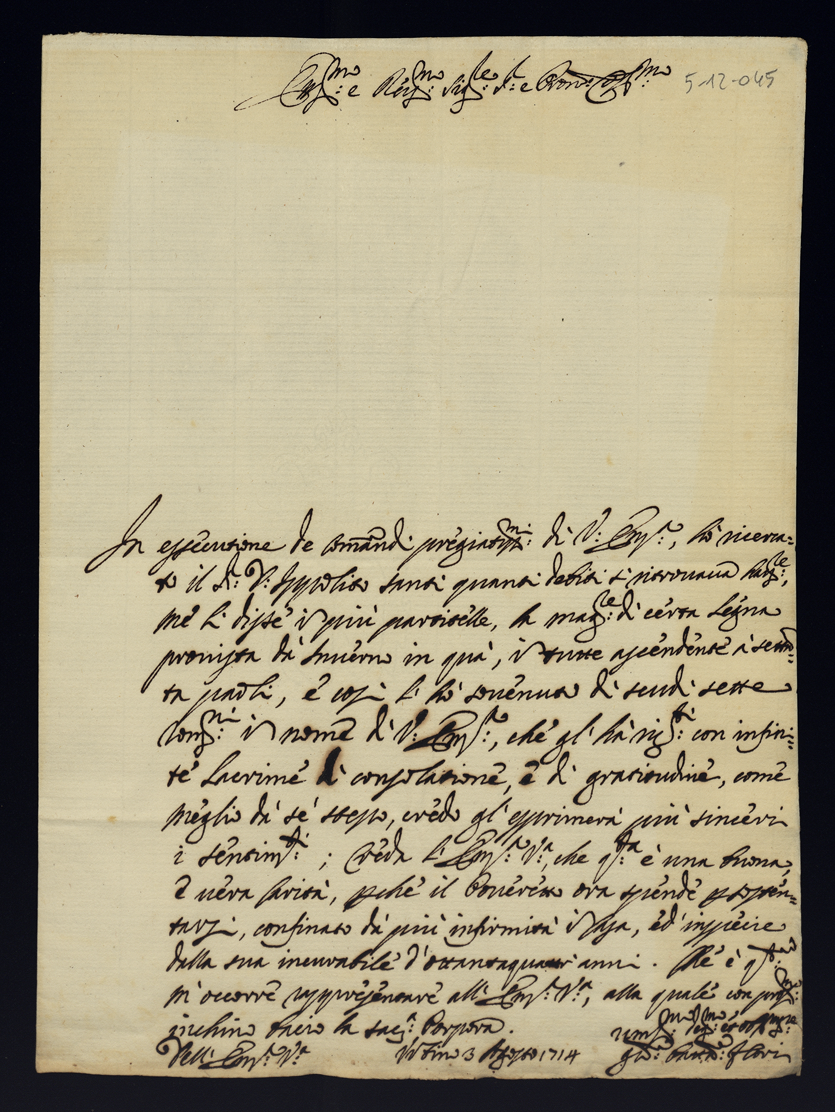 Em.mo e Rev.mo Sig.re S.r e Pron Col.mo
5-12-045
In essecutione de comandi pregiatis.mi di V: Em.a, hò ricerca=
to il S.r D: Ippolito Santi quanti debiti si ritrovava have.le,
mè li disse in più partitelle, la mag.re di certa Legna
provista dà Inverno in quà, in tutte ascendente à settan=
ta paoli, è così li hò sovenuto di scudi sette
Rom.ni in nome di V: Em.a, chè gl'hà rig.ti con infini=
tè Lacrimè di consolationè, è di gratitudinè, comè
meglio dà sè stesso, credo gl'esprimerà più sinceri
i sentim.ti; Creda l'Em.a V.a, che q.sta è una buona,
è vera Carità, perchè il Poveretto ora spende per sosten=
tarsi, confinato dà più infirmità in Casa, ed in specie
dalla sua incurabile d'ottantaquattr'anni. Ne è q.to
m'occorrè rappresentare all'Em.a V.a, alla quale con prof.mo
inchino bacio la sac.a Porpora.
Dell'Em.a V.a
Urbino 3 Agosto 1714
Um.mo Dev.mo et Obl.mo Ser.re